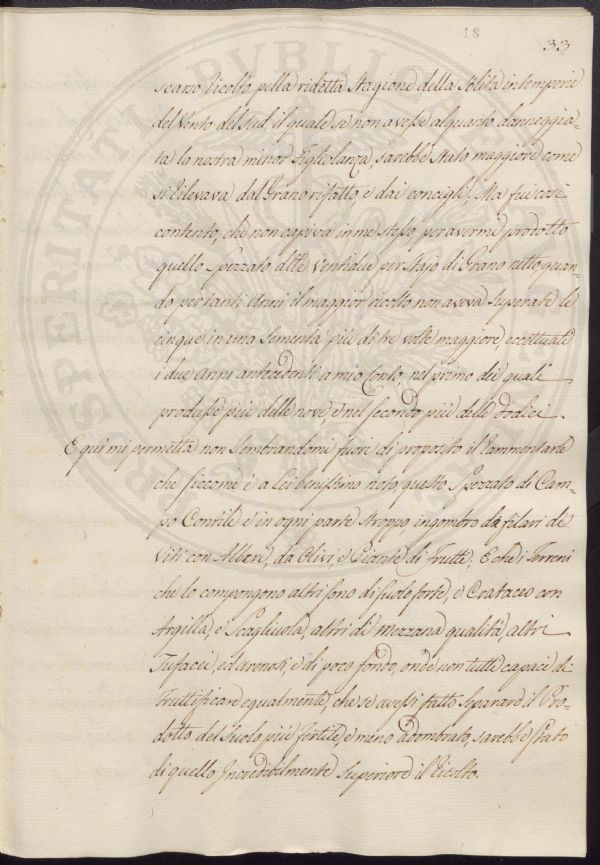 18
33
scarso Ricolto pella ridetta Stagione della solita intemperie
del Vento del Sud, il quale se non avesse alquanto danneggia-
ta la nostra minor figliolanza, sarebbe stato maggiore come
si rilevava dal Grano rifatto, e dai concigli. Ma fui così
contento, che non capiva in me stesso per avermi prodotto
quello Spezzato alle ventidue per stajo di Grano netto, quan-
do per tanti Anni il maggior ricolto non aveva superate le
cinque in una sementa più di tre volte maggiore, eccettuati
i due Anni antecedenti a mio Conto, nel primo dei quali
produsse più delle nove, e nel secondo più delle dodici.
E qui mi permetta non sembrandomi fuori di proposito il rammentarle
che siccome è a Lei benissimo noto, questo Spezzato di Cam-
po Contile è in ogni parte stroppo, ingombro di filari di
Viti con Alberi, da Olivi, e Piante di Frutti. E che i Terreni
che lo compongono altri sono di suolo forte, e Cretaceo con
Argilla, e Scagliuola, altri di Mezzana qualità, altri
Tufacei, ed arenosi, e di poco fondo, onde non tutti capaci di
Fruttificare egualmente, che se avessi fatto separare il Pro-
dotto del Suolo più fertile, e meno adombrato, sarebbe stato
di quello Incredibilmente superiore il Ricolto.
PROSPERITATI PUBLICAE